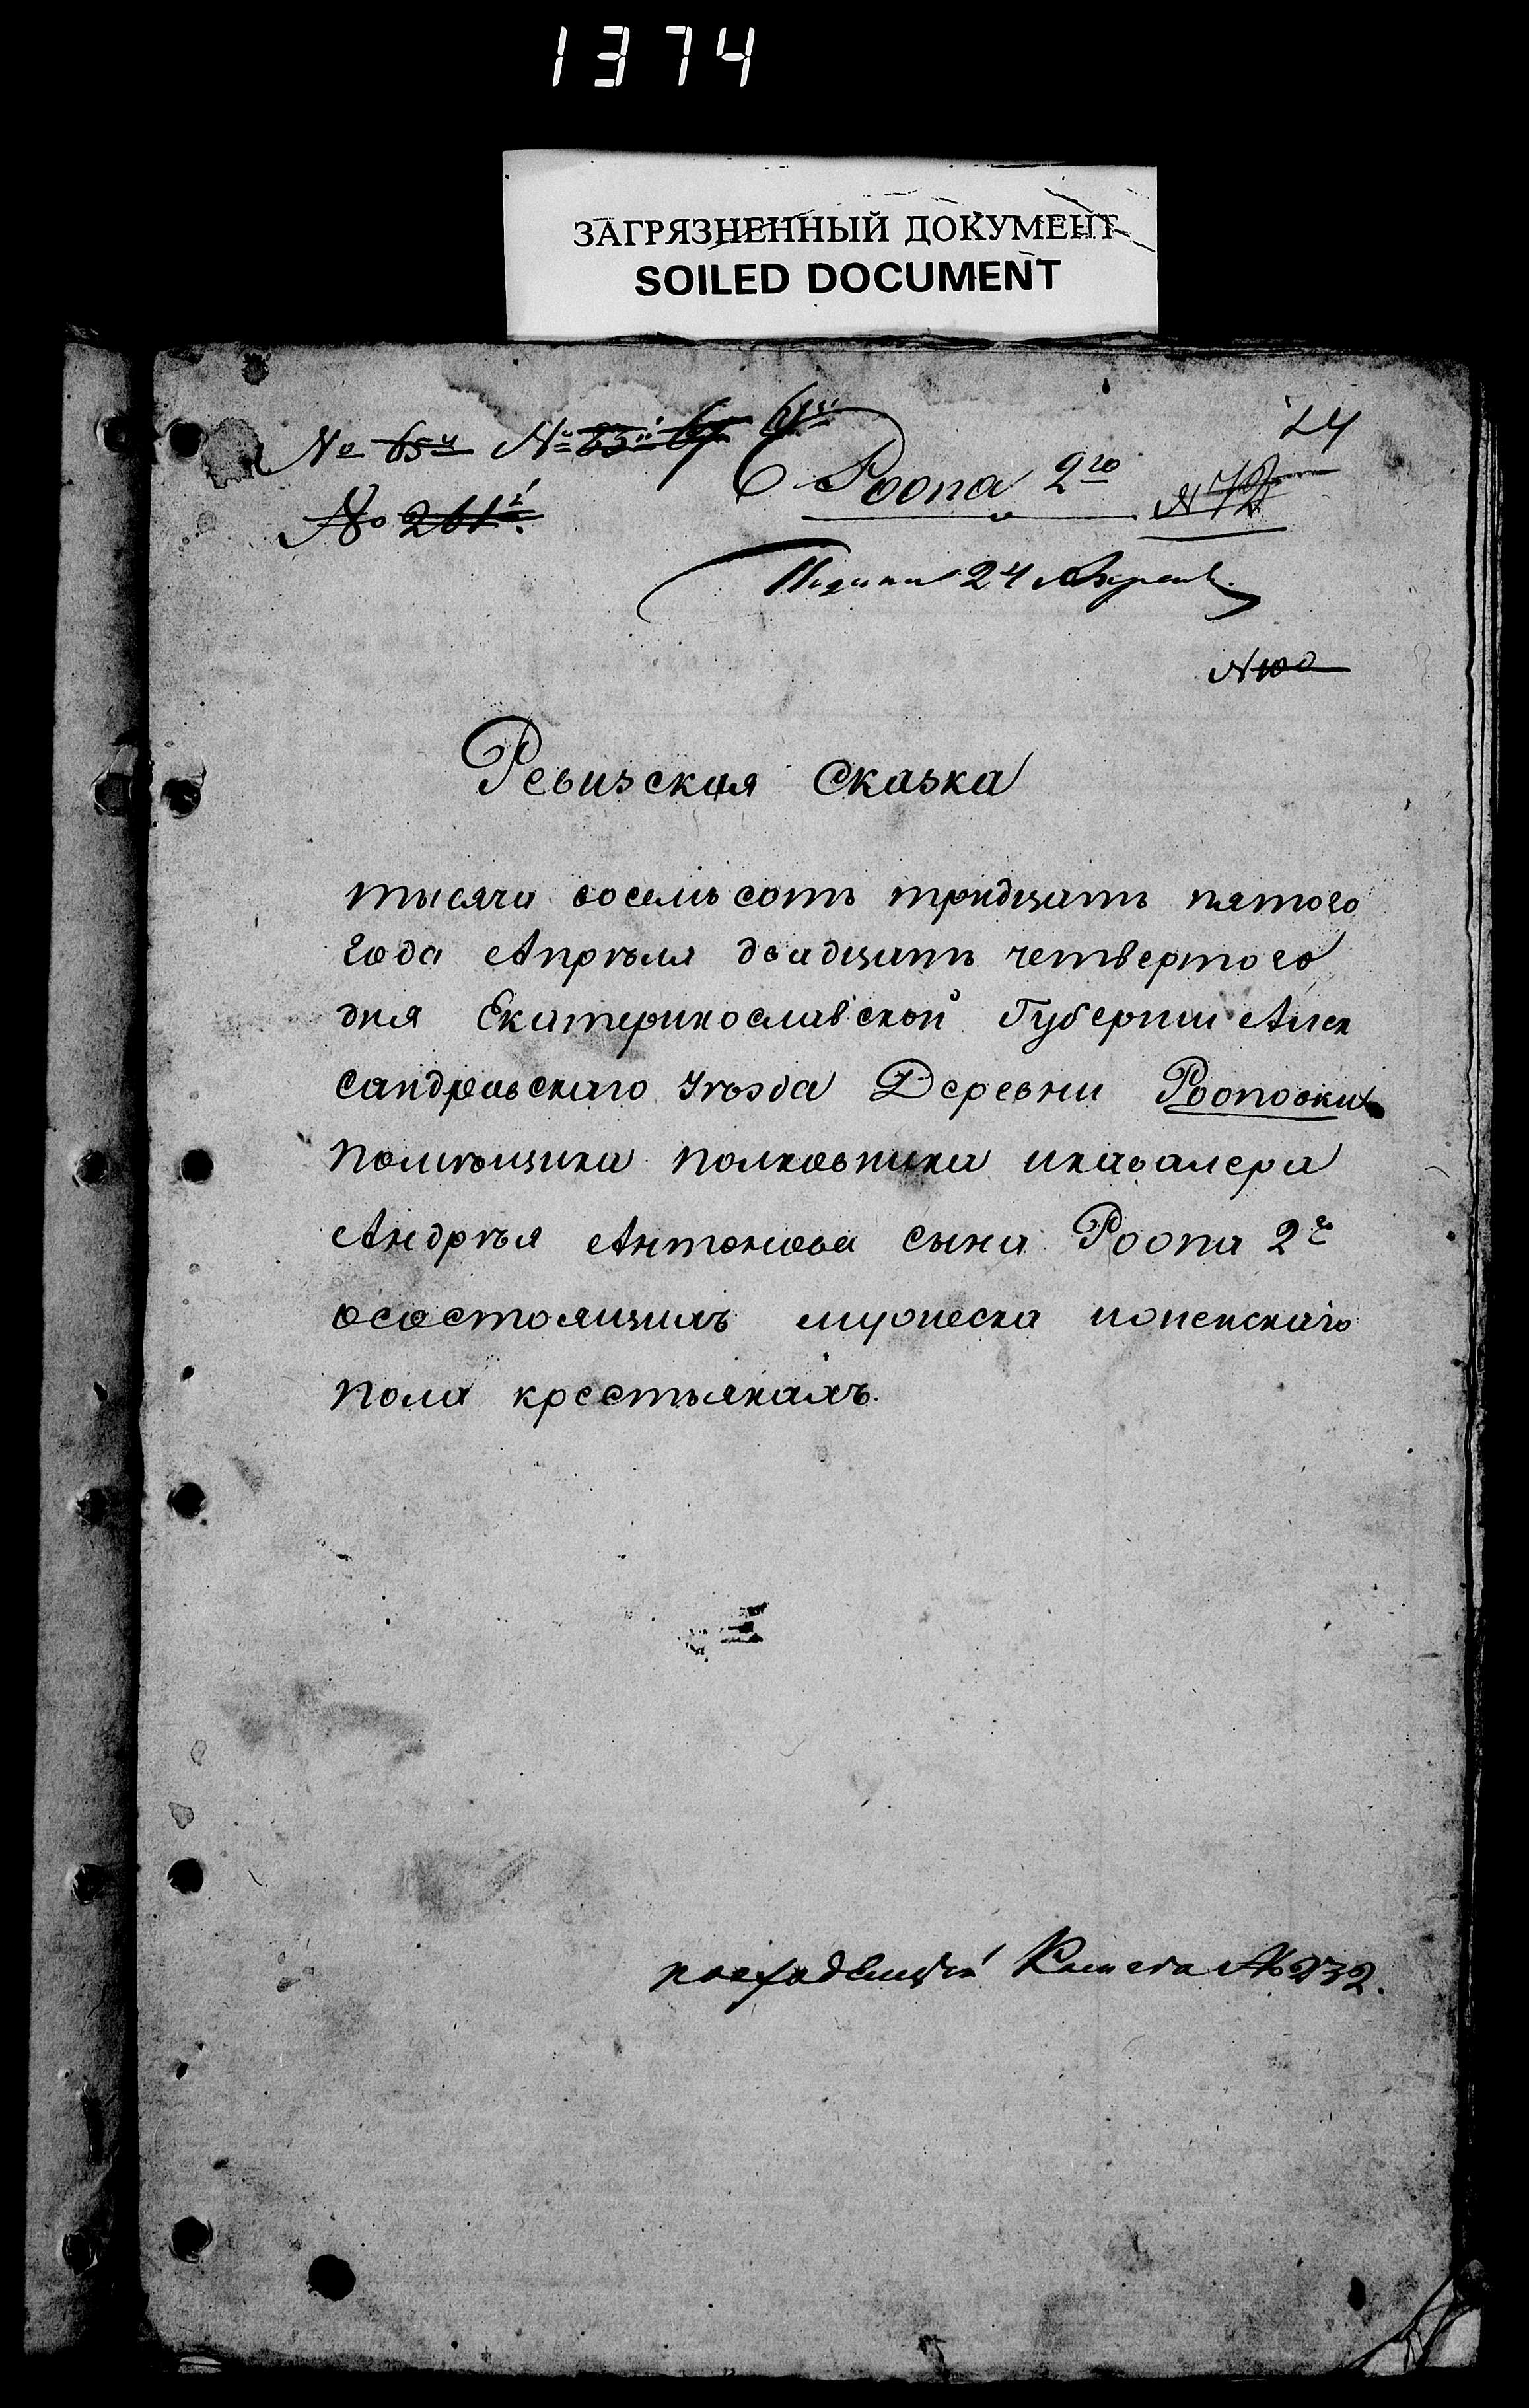 1374
ЗАГРЯЗНЕННЫЙ ДОКУМЕНТ
SOILED DOCUMENT
24
№ 65й № 
Роопа 2го № 72
№ 261й
24 Апреля
№ 100
Ревизская Сказка
тысяча восемь сотъ тридцать пятого
года Апрѣля двадцать четвертого
дня Екатеринославской Губернии Алек
сандровскаго Уѣзда Деревни Рооповки
помѣщика полковника икавалера
Андрѣя Антонова сына Роопа 2г
осостоящихъ мужеска иженскаго
пола крестьянахъ.
№ 232.